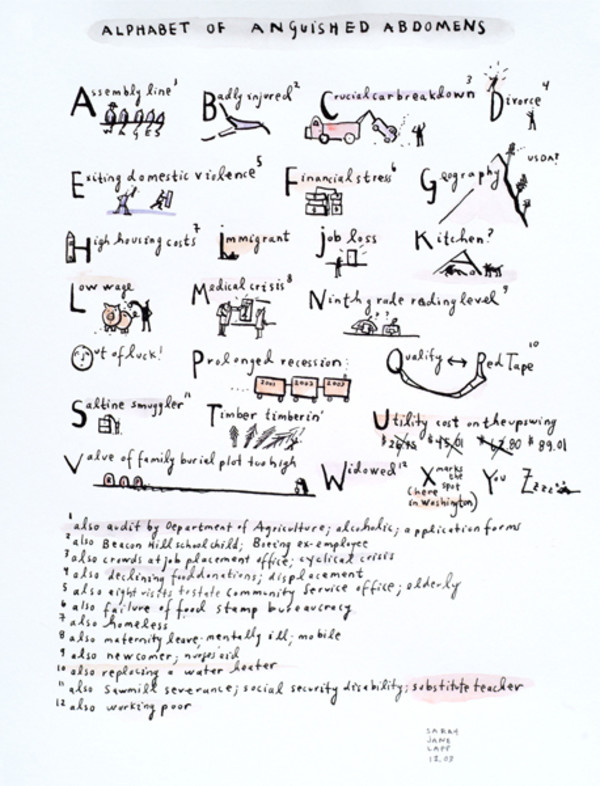 ALPHABET OF ANGUISHED ABDOMENS
Assembly line¹ Badly injured² Crucial car breakdown³ Divorce⁴
WAGES
Exiting domestic violence⁵ Financial stress⁶ Geography USDA?
High housing costs⁷ Immigrant Job loss Kitchen?
Low wage Medical crisis⁸ Ninth grade reading level⁹
? ?
Out of luck! Prolonged recession Qualify ↔ Red Tape¹⁰
2001 2002 2003
Saltine smuggler¹¹ Timber timberin' Utility cost on the upswing
$ 89.01
Value of family burial plot too high Widowed¹² X marks the spot (here in Washington) You Zzzz
¹ also audit by Department of Agriculture; alcoholic; application forms
² also Beacon Hill schoolchild; Boeing ex-employee
³ also crowds at job placement office; cyclical crisis
⁴ also declining food donations; displacement
⁵ also eight visits to state Community Service office; elderly
⁶ also failure of food stamp bureaucracy
⁷ also homeless
⁸ also maternity leave; mentally ill; mobile
⁹ also newcomer; nurses aid
¹⁰ also replacing a water heater
¹¹ also Sawmill severance; social security disability; substitute teacher
¹² also working poor
SARAH
JANE
LAPP
12.03